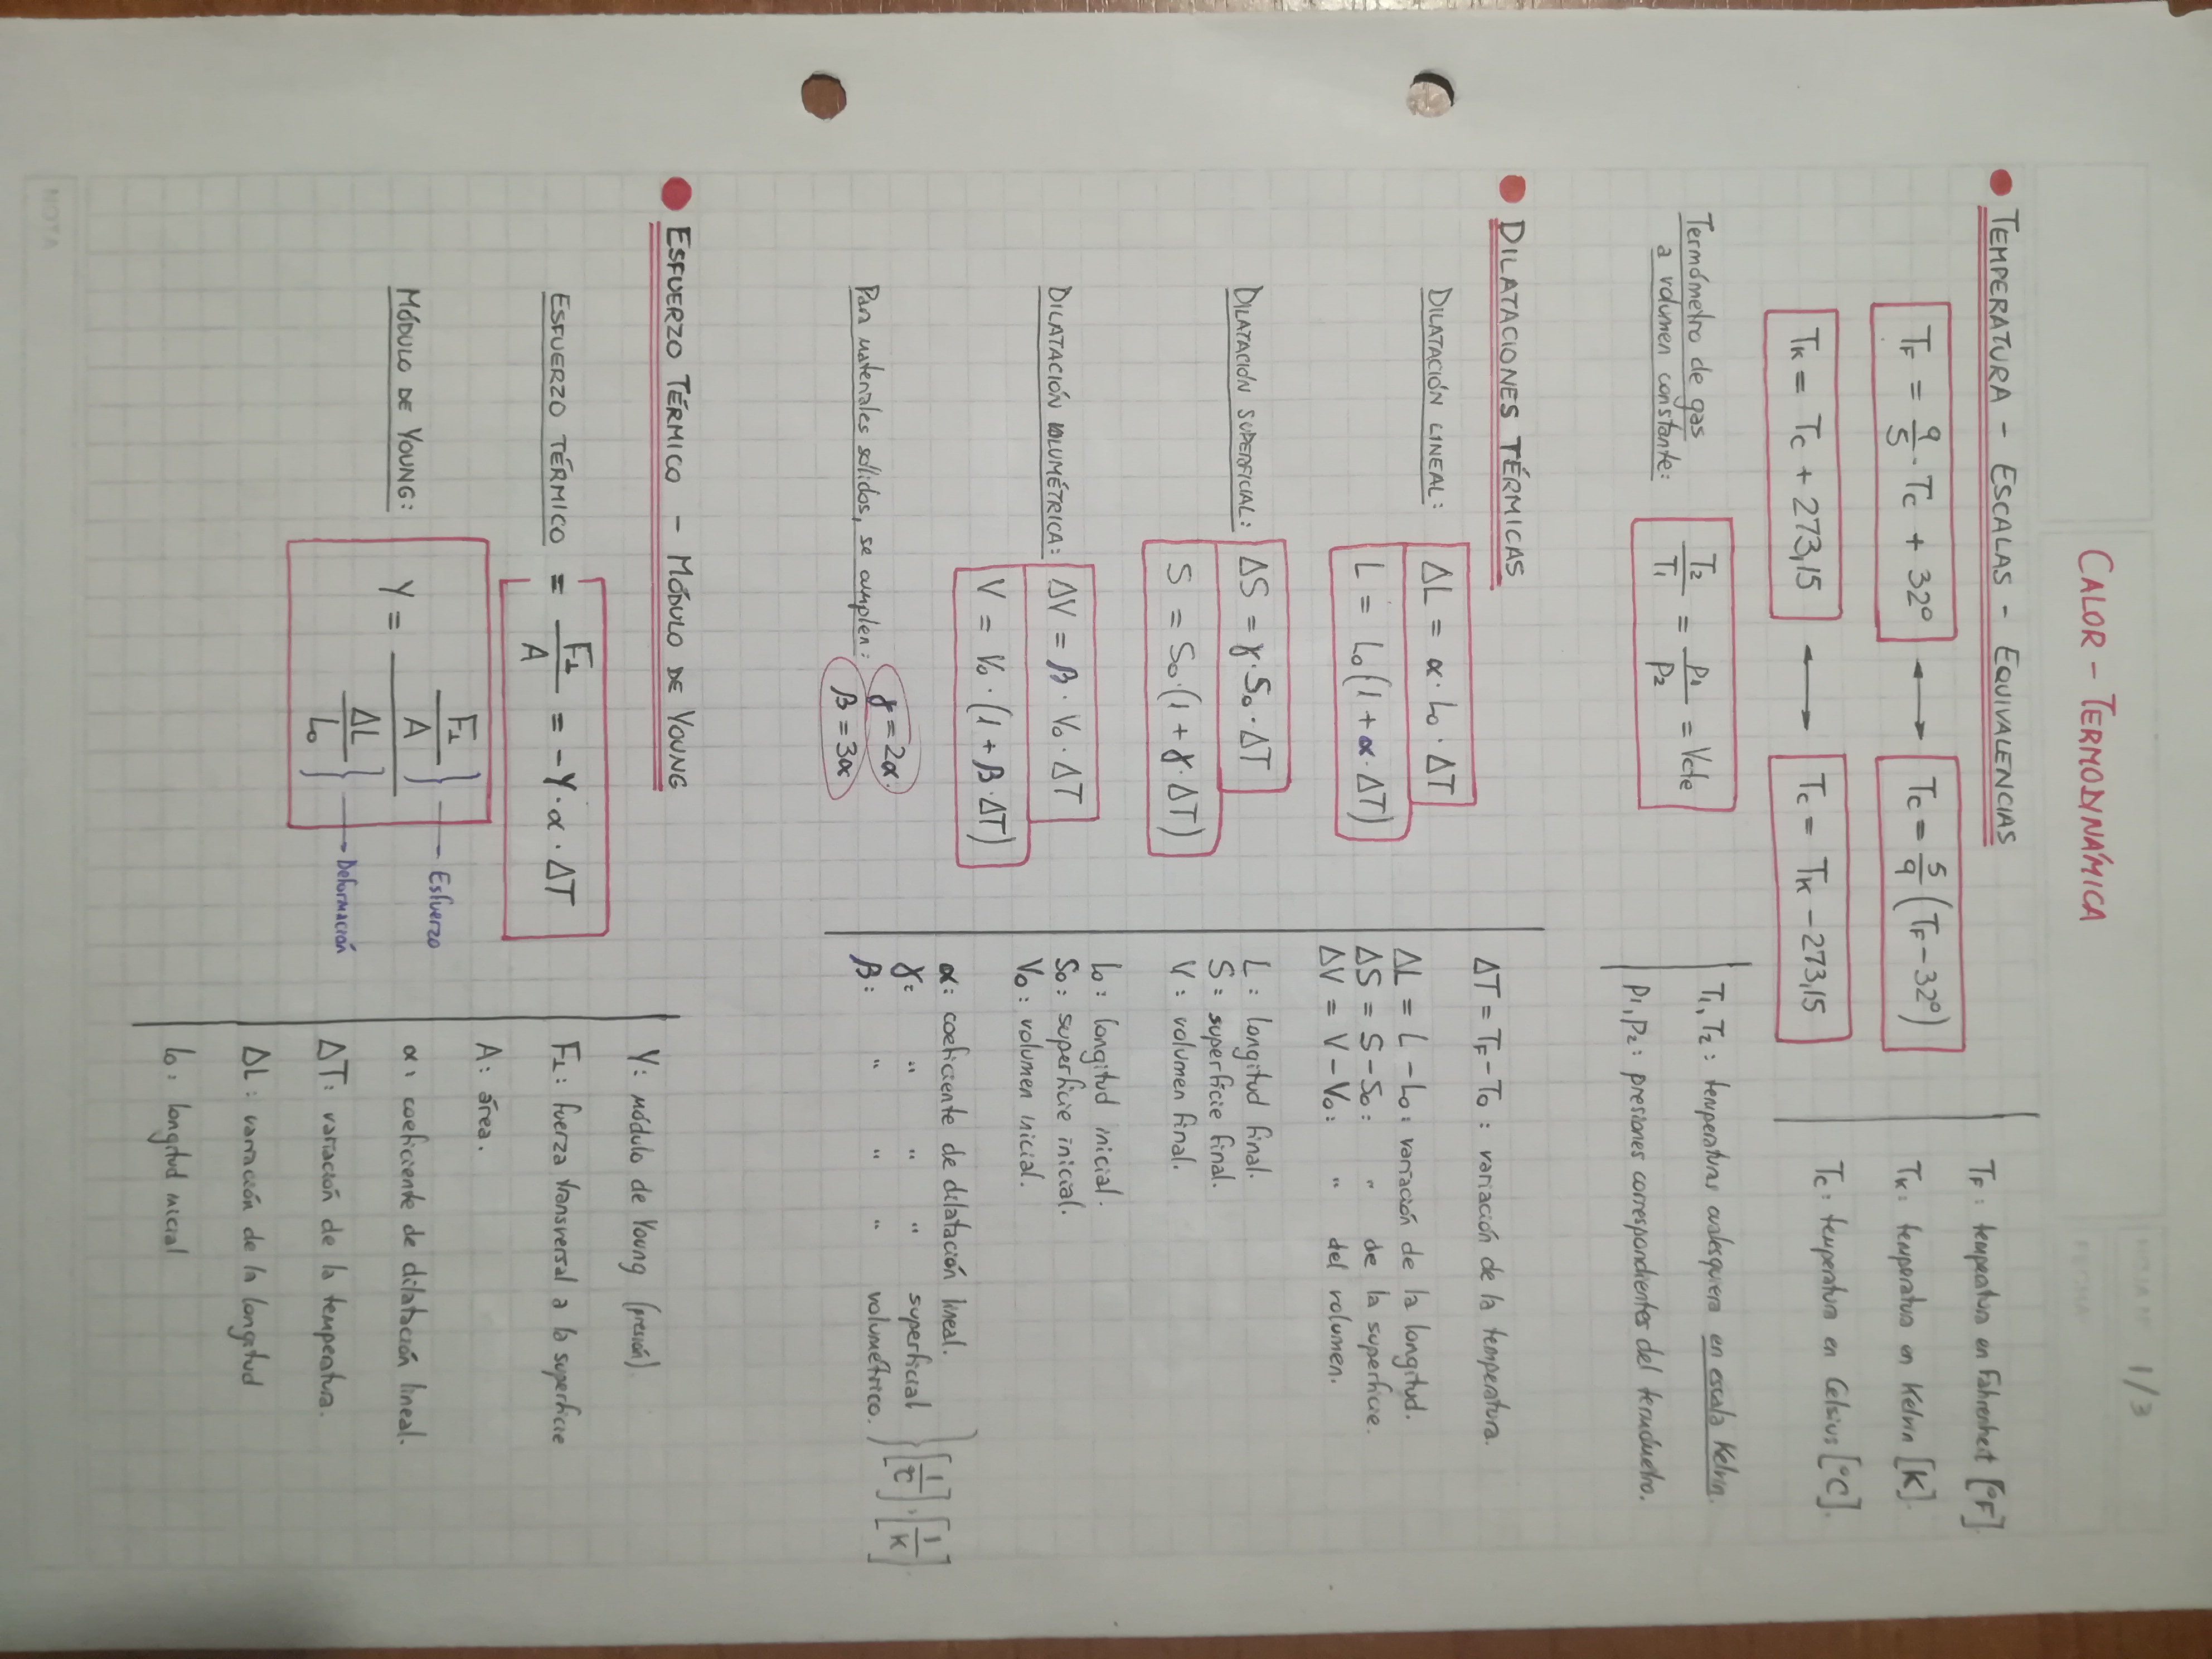 HOJA Nº 1/3
FECHA:
CALOR - TERMODINÁMICA
TEMPERATURA - ESCALAS - EQUIVALENCIAS
T_F = 9/5 · T_C + 32° ⟷ T_C = 5/9 (T_F - 32°)
T_K = T_C + 273,15 ⟷ T_C = T_K - 273,15
T_F: temperatura en Fahrenheit [°F].
T_K: temperatura en Kelvin [K].
T_C: temperatura en Celsius [°C].
Termómetro de gas
a volumen constante:
T₂/T₁ = p₁/p₂ = Vcte
T₁, T₂: temperaturas cualesquiera en escala Kelvin.
p₁, p₂: presiones correspondientes del termómetro.
DILATACIONES TÉRMICAS
DILATACIÓN LINEAL: ΔL = α · L₀ · ΔT
L = L₀(1 + α · ΔT)
DILATACIÓN SUPERFICIAL: ΔS = γ · S₀ · ΔT
S = S₀·(1 + γ · ΔT)
DILATACIÓN VOLUMÉTRICA: ΔV = β · V₀ · ΔT
V = V₀ · (1 + β · ΔT)
Para materiales sólidos, se cumplen: γ = 2α.
β = 3α
ΔT = T_F - T₀: variación de la temperatura.
ΔL = L - L₀: variación de la longitud.
ΔS = S - S₀: " de la superficie.
ΔV = V - V₀: " del volumen.
L: longitud final.
S: superficie final.
V: volumen final.
L₀: longitud inicial.
S₀: superficie inicial.
V₀: volumen inicial.
α: coeficiente de dilatación lineal.
γ: " " " superficial
β: " " " volumétrico.
} [1/°C], [1/K]
ESFUERZO TÉRMICO - MÓDULO DE YOUNG
ESFUERZO TÉRMICO = F⊥/A = -Y · α · ΔT
MÓDULO DE YOUNG: Y = (F⊥/A)/(ΔL/L₀)
Esfuerzo
Deformación
Y: módulo de Young (presión)
F⊥: fuerza transversal a la superficie
A: área.
α: coeficiente de dilatación lineal.
ΔT: variación de la temperatura.
ΔL: variación de la longitud
L₀: longitud inicial
NOTA